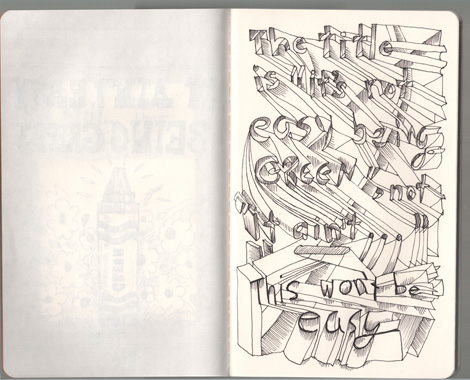 The title
is "it's not
easy being
GREEN", not
"it ain't..."
This won't be
easy